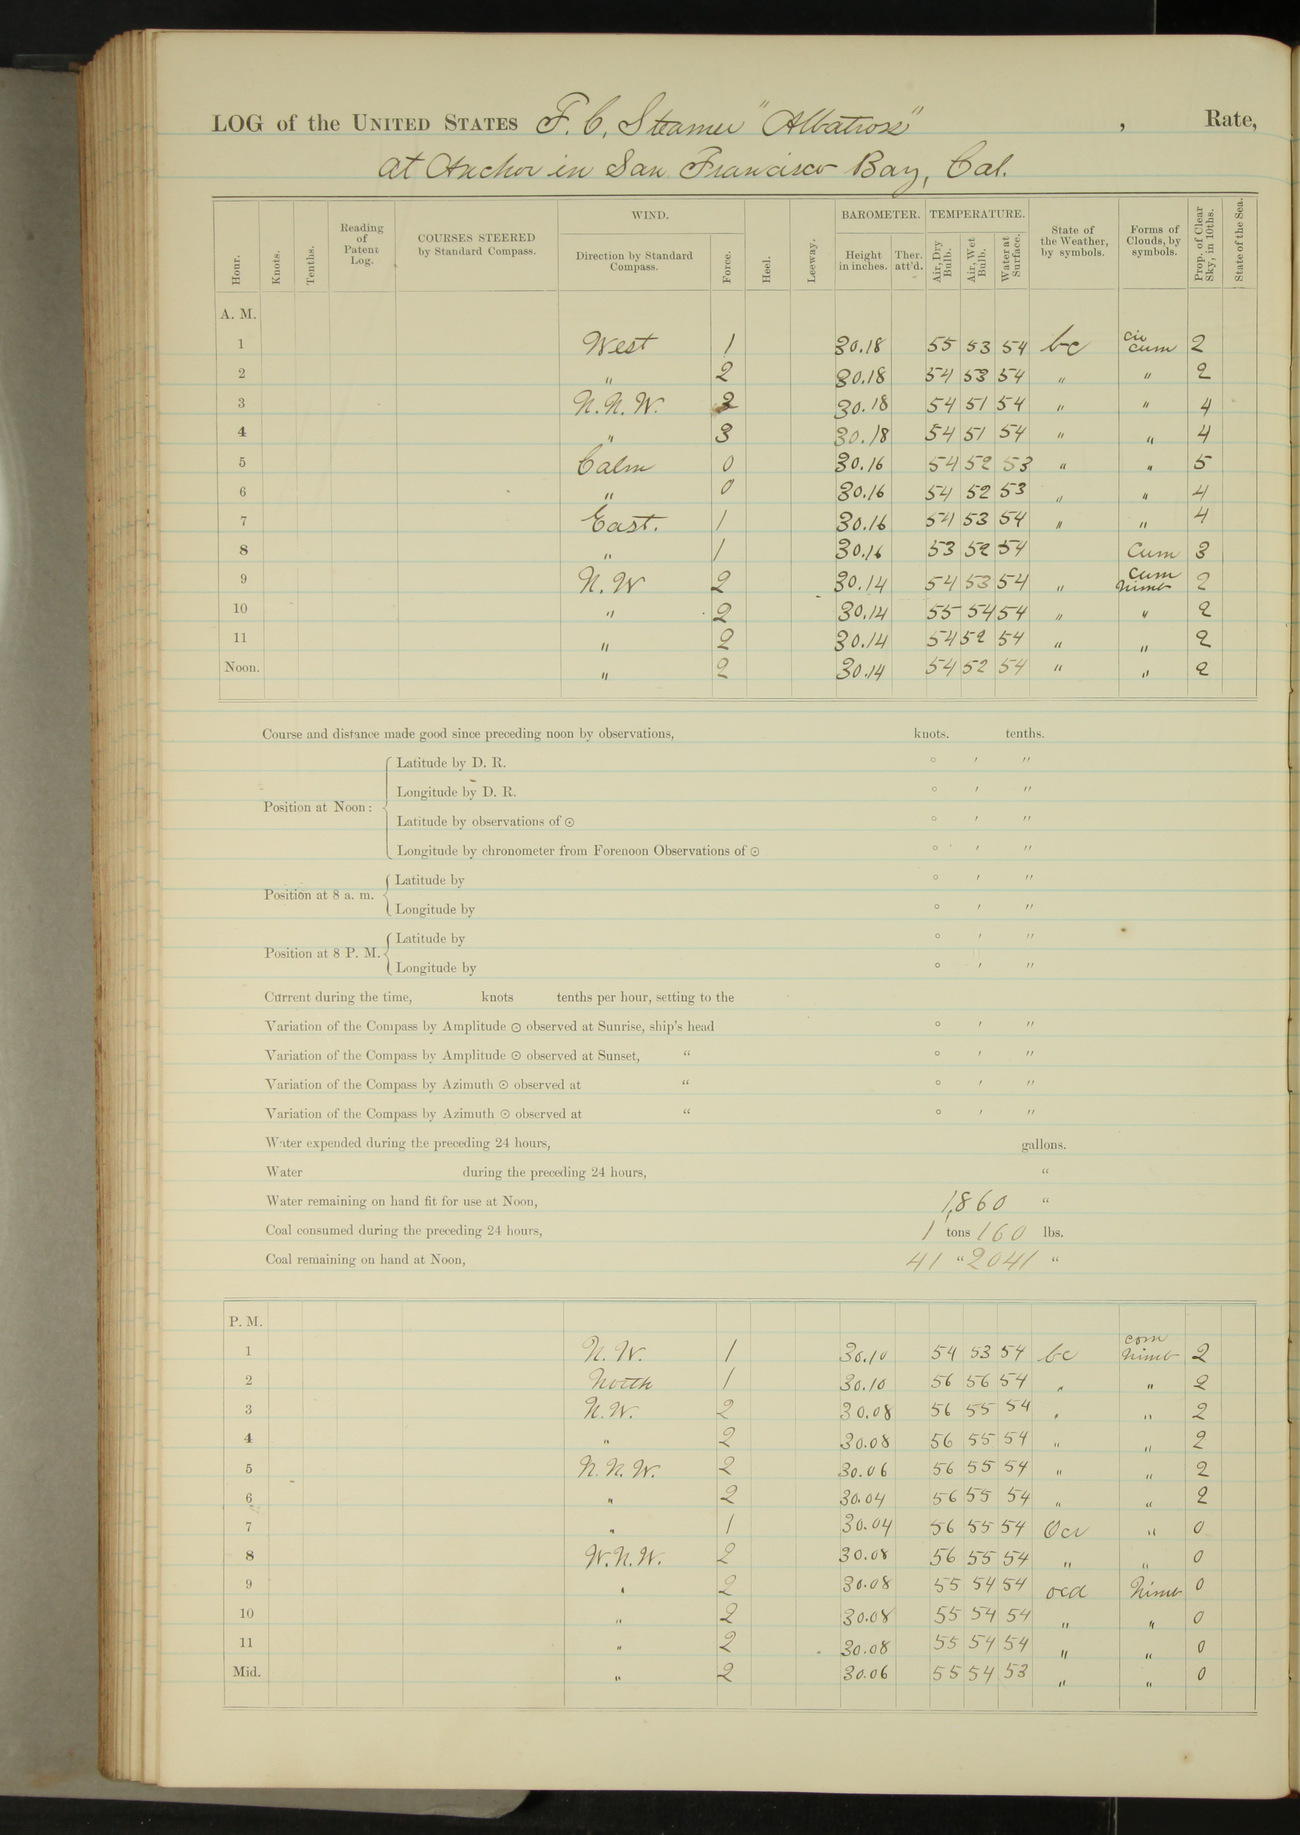 LOG of the UNITED STATES F. C. Steamer "Albatross", Rate,
At Anchor in San Francisco Bay, Cal.
Hour. Knots. Tenths. Reading of Patent Log. COURSES STEERED by Standard Compass. WIND. Direction by Standard Compass. Force. Heel. Leeway. BAROMETER. Height in inches. Ther. att'd. TEMPERATURE. Air, Dry Bulb. Air, Wet Bulb. Water at Surface. State of the Weather, by symbols. Forms of Clouds, by symbols. Prop. of Clear Sky, in 10ths. State of the Sea.
A. M.
1 West 1 30.18 55 53 54 bc Cir Cum 2
2 " 2 30.18 54 53 54 " " 2
3 N.N.W. 3 30.18 54 51 54 " " 4
4 " 3 30.18 54 51 54 " " 4
5 Calm 0 30.16 54 52 53 " " 5
6 " 0 30.16 54 52 53 " " 4
7 East. 1 30.16 54 53 54 " " 4
8 " 1 30.16 53 52 54 Cum 3
9 N.W 2 30.14 54 53 54 " Cum Nimb 2
10 " 2 30.14 55 54 54 " " 2
11 " 2 30.14 54 52 54 " " 2
Noon. " 2 30.14 54 52 54 " " 2
Course and distance made good since preceding noon by observations, knots. tenths.
Position at Noon:
Latitude by D. R. ° ′ ″
Longitude by D. R. ° ′ ″
Latitude by observations of ☉ ° ′ ″
Longitude by chronometer from Forenoon Observations of ☉ ° ′ ″
Position at 8 a. m.
Latitude by ° ′ ″
Longitude by ° ′ ″
Position at 8 P. M.
Latitude by ° ′ ″
Longitude by ° ′ ″
Current during the time, knots tenths per hour, setting to the
Variation of the Compass by Amplitude ☉ observed at Sunrise, ship's head ° ′ ″
Variation of the Compass by Amplitude ☉ observed at Sunset, " ° ′ ″
Variation of the Compass by Azimuth ☉ observed at " ° ′ ″
Variation of the Compass by Azimuth ☉ observed at " ° ′ ″
Water expended during the preceding 24 hours, gallons.
Water during the preceding 24 hours, "
Water remaining on hand fit for use at Noon, 1,860 "
Coal consumed during the preceding 24 hours, 1 tons 160 lbs.
Coal remaining on hand at Noon, 41 " 2041 "
P. M.
1 N.W. 1 30.10 54 53 54 bc Com Nimb 2
2 North 1 30.10 56 56 54 " " 2
3 N.W. 2 30.08 56 55 54 " " 2
4 " 2 30.08 56 55 54 " " 2
5 N.N.W. 2 30.06 56 55 54 " " 2
6 " 2 30.04 56 55 54 " " 2
7 " 1 30.04 56 55 54 Oc " 0
8 W.N.W. 2 30.08 56 55 54 " " 0
9 " 2 30.08 55 54 54 ocd Nimb 0
10 " 2 30.08 55 54 54 " " 0
11 " 2 30.08 55 54 54 " " 0
Mid. " 2 30.06 55 54 53 " " 0